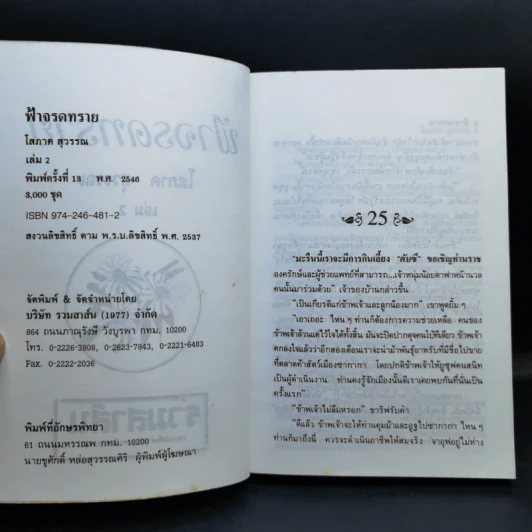 ฟ้าจรดทราย
โสภาค สุวรรณ
เล่ม 2
พิมพ์ครั้งที่ 13 พ.ศ. 2546
3,000 ชุด
ISBN 974-246-481-2
สงวนลิขสิทธิ์ ตาม พ.ร.บ.ลิขสิทธิ์ พ.ศ. 2537
จัดพิมพ์ & จัดจำหน่ายโดย
บริษัท รวมสาส์น (1977) จำกัด
864 ถนนภาณุรังษี วังบูรพา กทม. 10200
โทร. 0-2226-3808, 0-2623-7843, 0-2221-6483
Fax. 0-2222-2036
พิมพ์ที่อักษรพิทยา
61 ถนนมหรรณพ กทม. 10200
นายชูศักดิ์ หล่อสุวรรณศิริ ผู้พิมพ์ผู้โฆษณา
25
"มะรืนนี้เราจะมีการกินเลี้ยง "ดับซี" ขอเชิญท่านราช
องครักษ์และผู้ช่วยแพทย์ที่สามารถ...เจ้าหนุ่มน้อยตาฟาหน้านวล
คนนั้นมาร่วมด้วย" เจ้าของบ้านกล่าวขึ้น
"เป็นเกียรติแก่ข้าพเจ้าและลูกน้องมาก" เขาพูดยิ้ม ๆ
"เอาเถอะ ไหน ๆ ท่านก็ต้องการความช่วยเหลือ คนของ
ข้าพเจ้าล้วนแต่ไว้ใจได้ทั้งสิ้น มันจะปิดปากดุจคนใบ้ทีเดียว ข้าพเจ้า
ตกลงใจแล้วว่าอีกสองเดือนเราจะนำม้าพันธุ์อาหรับที่มีชื่อไปขาย
ที่ตลาดค้าสัตว์เมืองซาากากา โดยปกติข้าพเจ้าให้ยูซุฟคนสนิท
เป็นผู้ดำเนินงาน ท่านคงรู้จักเมืองนั้นดีเราเคยพบกันที่นั่นเป็น
ครั้งแรก"
"ข้าพเจ้าไม่ลืมหรอก" ชาริฟรับคำ
"ดีแล้ว ข้าพเจ้าจะให้ท่านคุมม้าและอูฐไปซาากากา ไหน ๆ
ท่านก็มาถึงนี่ ควรจะดำเนินอาชีพให้สมจริง จาอูฟอยู่ไม่ห่าง